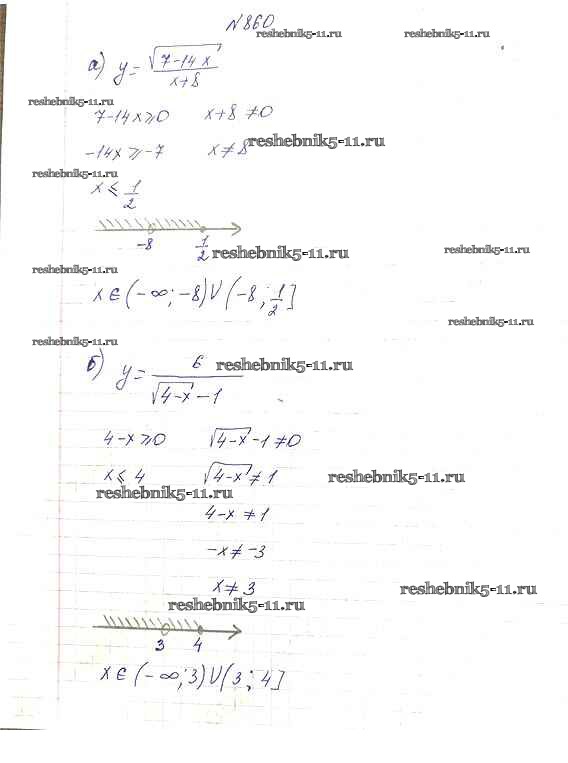 №860
reshebnik5-11.ru reshebnik5-11.ru
а) y = √(7-14x) / (x+8)
reshebnik5-11.ru
7-14x ≥ 0 x+8 ≠ 0
-14x ≥ -7 x ≠ 8 reshebnik5-11.ru
reshebnik5-11.ru
x ≤ 1/2
-8 1/2 reshebnik5-11.ru reshebnik5-11.ru
reshebnik5-11.ru
x ∈ (-∞; -8) ∪ (-8; 1/2]
reshebnik5-11.ru
reshebnik5-11.ru
б) y = 6 / (√(4-x) - 1) reshebnik5-11.ru
4-x ≥ 0 √(4-x) - 1 ≠ 0
x ≤ 4 √(4-x) ≠ 1 reshebnik5-11.ru
reshebnik5-11.ru
4-x ≠ 1
-x ≠ -3
x ≠ 3 reshebnik5-11.ru
reshebnik5-11.ru
3 4
x ∈ (-∞; 3) ∪ (3; 4]